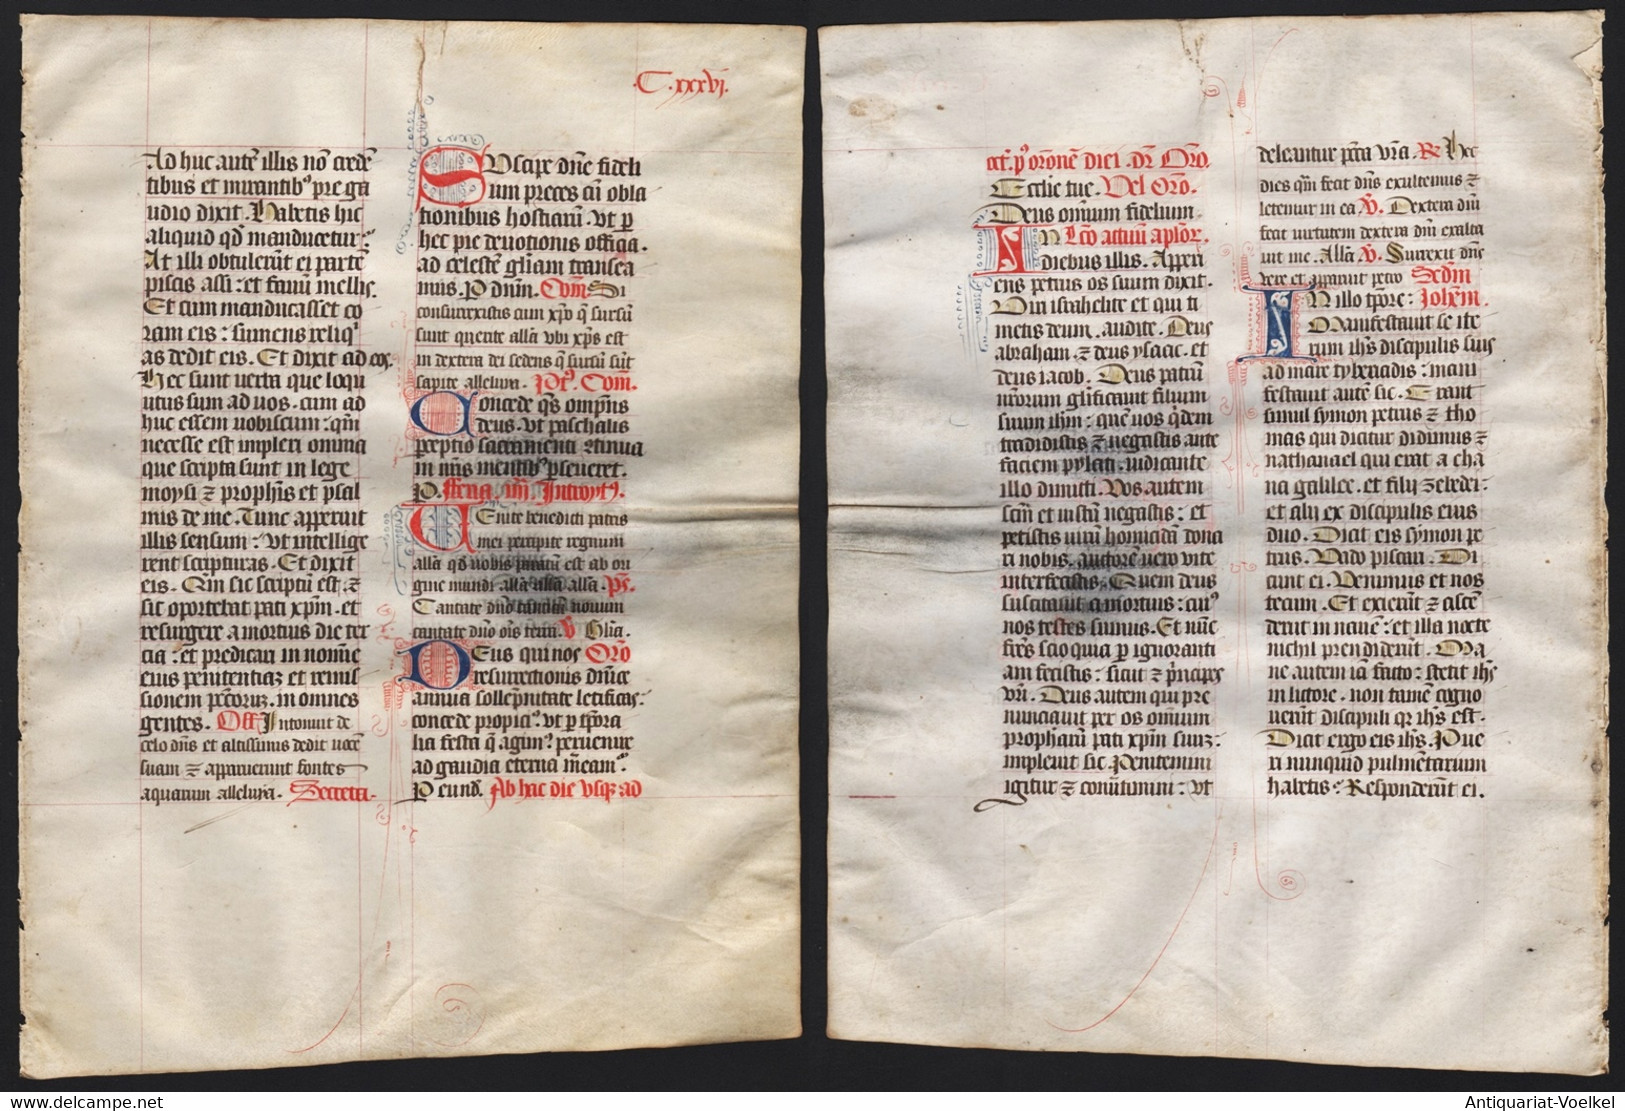 .C.xxxvj.
Ad huc autē illis nō credē
tibus et mirantib⁹ pre ga
udio dixit. Habetis hic
aliquid qd̄ manducetur?
At illi obtulerūt ei partē
piscis assi: et fauū mellis.
Et cum manducasset co
ram eis: sumens reliq
as dedit eis. Et dixit ad eos.
Hec sunt uerba que loqu
utus sum ad uos. cum ad
huc essem uobiscum: qm̄
necesse est impleri omnia
que scripta sunt in lege
moysi ⁊ prophīs et psal
mis de me. Tunc apperuit
illis sensum: vt intellige
rent scripturas. Et dixit
eis. Qm̄ sic scriptū est. ⁊
sic oportebat pati xp̄m. et
resurgere a mortuis die ter
cia: et predicari in nomīe
eius penitentiaz et remis
sionem pctōruz. in omnes
gentes. Off. Intonuit de
celo dn̄s et altissimus dedit uocē
suam ⁊ apparuerunt fontes
aquarum alleluya. Secreta.
Suscipe dn̄e fideli
um preces cū obla
tionibus hostiarū. vt p
hec pie deuotionis officia.
ad celestē gl̄iam transea
mus. P dnūm. Com̄. Si
consurrexistis cum xp̄o q̄ sursū
sunt querite all̄a vbi xp̄s est
in dextera dei sedens q̄ sursū sūt
sapite alleluya. Pt⁹ Com̄.
Concede q̄s omp̄ns
deus. vt paschalis
perceptio sacramenti ⁊tinua
in nr̄is mentib⁹ pseueret.
P. Feria. iiij. Introyt⁹.
Uenite benedicti patris
mei percipite regnum
all̄a qd̄ uobis paratū est ab ori
gine mundi all̄a all̄a all̄a. Ps̄.
Cantate dn̄o canticū nouum
cantate dn̄o ōis terra. V Gl̄ia.
Deus qui nos Oro
resurrectionis dn̄ice
annua sollepnitate letificas.
concede propici⁹. vt p tp̄ora
lia festa q̄ agim⁹. peruenire
ad gaudia eterna meam⁹.
P eund. Ab hac die usq; ad
oct. p⁹ orōnē diei. dr̄ Oro.
Ecclie tue. Vel Oro.
Deus omnium fidelium.
In Lco actuū aplor.
diebus illis. Apperi
ens petrus os suum dixit.
Viri israhelite et qui ti
metis deum. audite. Deus
abraham. ⁊ deus ysaac. et
deus iacob. Deus patrū
nr̄orum glificauit filium
suum ihm̄: quē uos q̄dem
tradidistis ⁊ negastis ante
faciem pylati. iudicante
illo dimitti. Vos autem
scm̄ et iustū negastis: et
petistis uirū homicidā dona
ri uobis. auctorē uero vite
interfecistis. Quem deus
suscitauit a mortuis: cui⁹
nos testes sumus. Et nūc
frēs scio quia p ignoranti
am fecistis: sicut ⁊ p̄ncipes
vr̄i. Deus autem qui pre
nunciauit per os omnium
prophetarū pati xp̄m suuz:
impleuit sic. Penitemini
igitur ⁊ conūtimini: vt
deleantur pctā vr̄a. R Hec
dies qm̄ fecit dn̄s exultemus ⁊
letemur in ea V̄. Dextera dn̄i
fecit uirtutem dextera dn̄i exalta
uit me. All̄a V̄. Surrexit dn̄s
vere et apparuit petro Scdm̄
In illo tp̄ore: Johem̄.
Manifestauit se ite
rum ihs discipulis suis
ad mare tyberiadis: mani
festauit autē sic. Erant
simul symon petrus ⁊ tho
mas qui dicitur didimus ⁊
nathanael qui erat a cha
na galilee. et filij zebedei:
et alij ex discipulis eius
duo. Dicit eis symon pe
trus. Vado piscari. Di
cunt ei. Venimus et nos
tecum. Et exierūt ⁊ ascē
derūt in nauē: et illa nocte
nichil prendiderūt. Ma
ne autem iā facto: stetit ihs
in littore. non tamē cogno
uerūt discipuli qr ihs est.
Dicit ergo eis ihs. Pue
ri nunquid pulmētarium
habetis: Responderūt ei.
Antiquariat-Voelkel